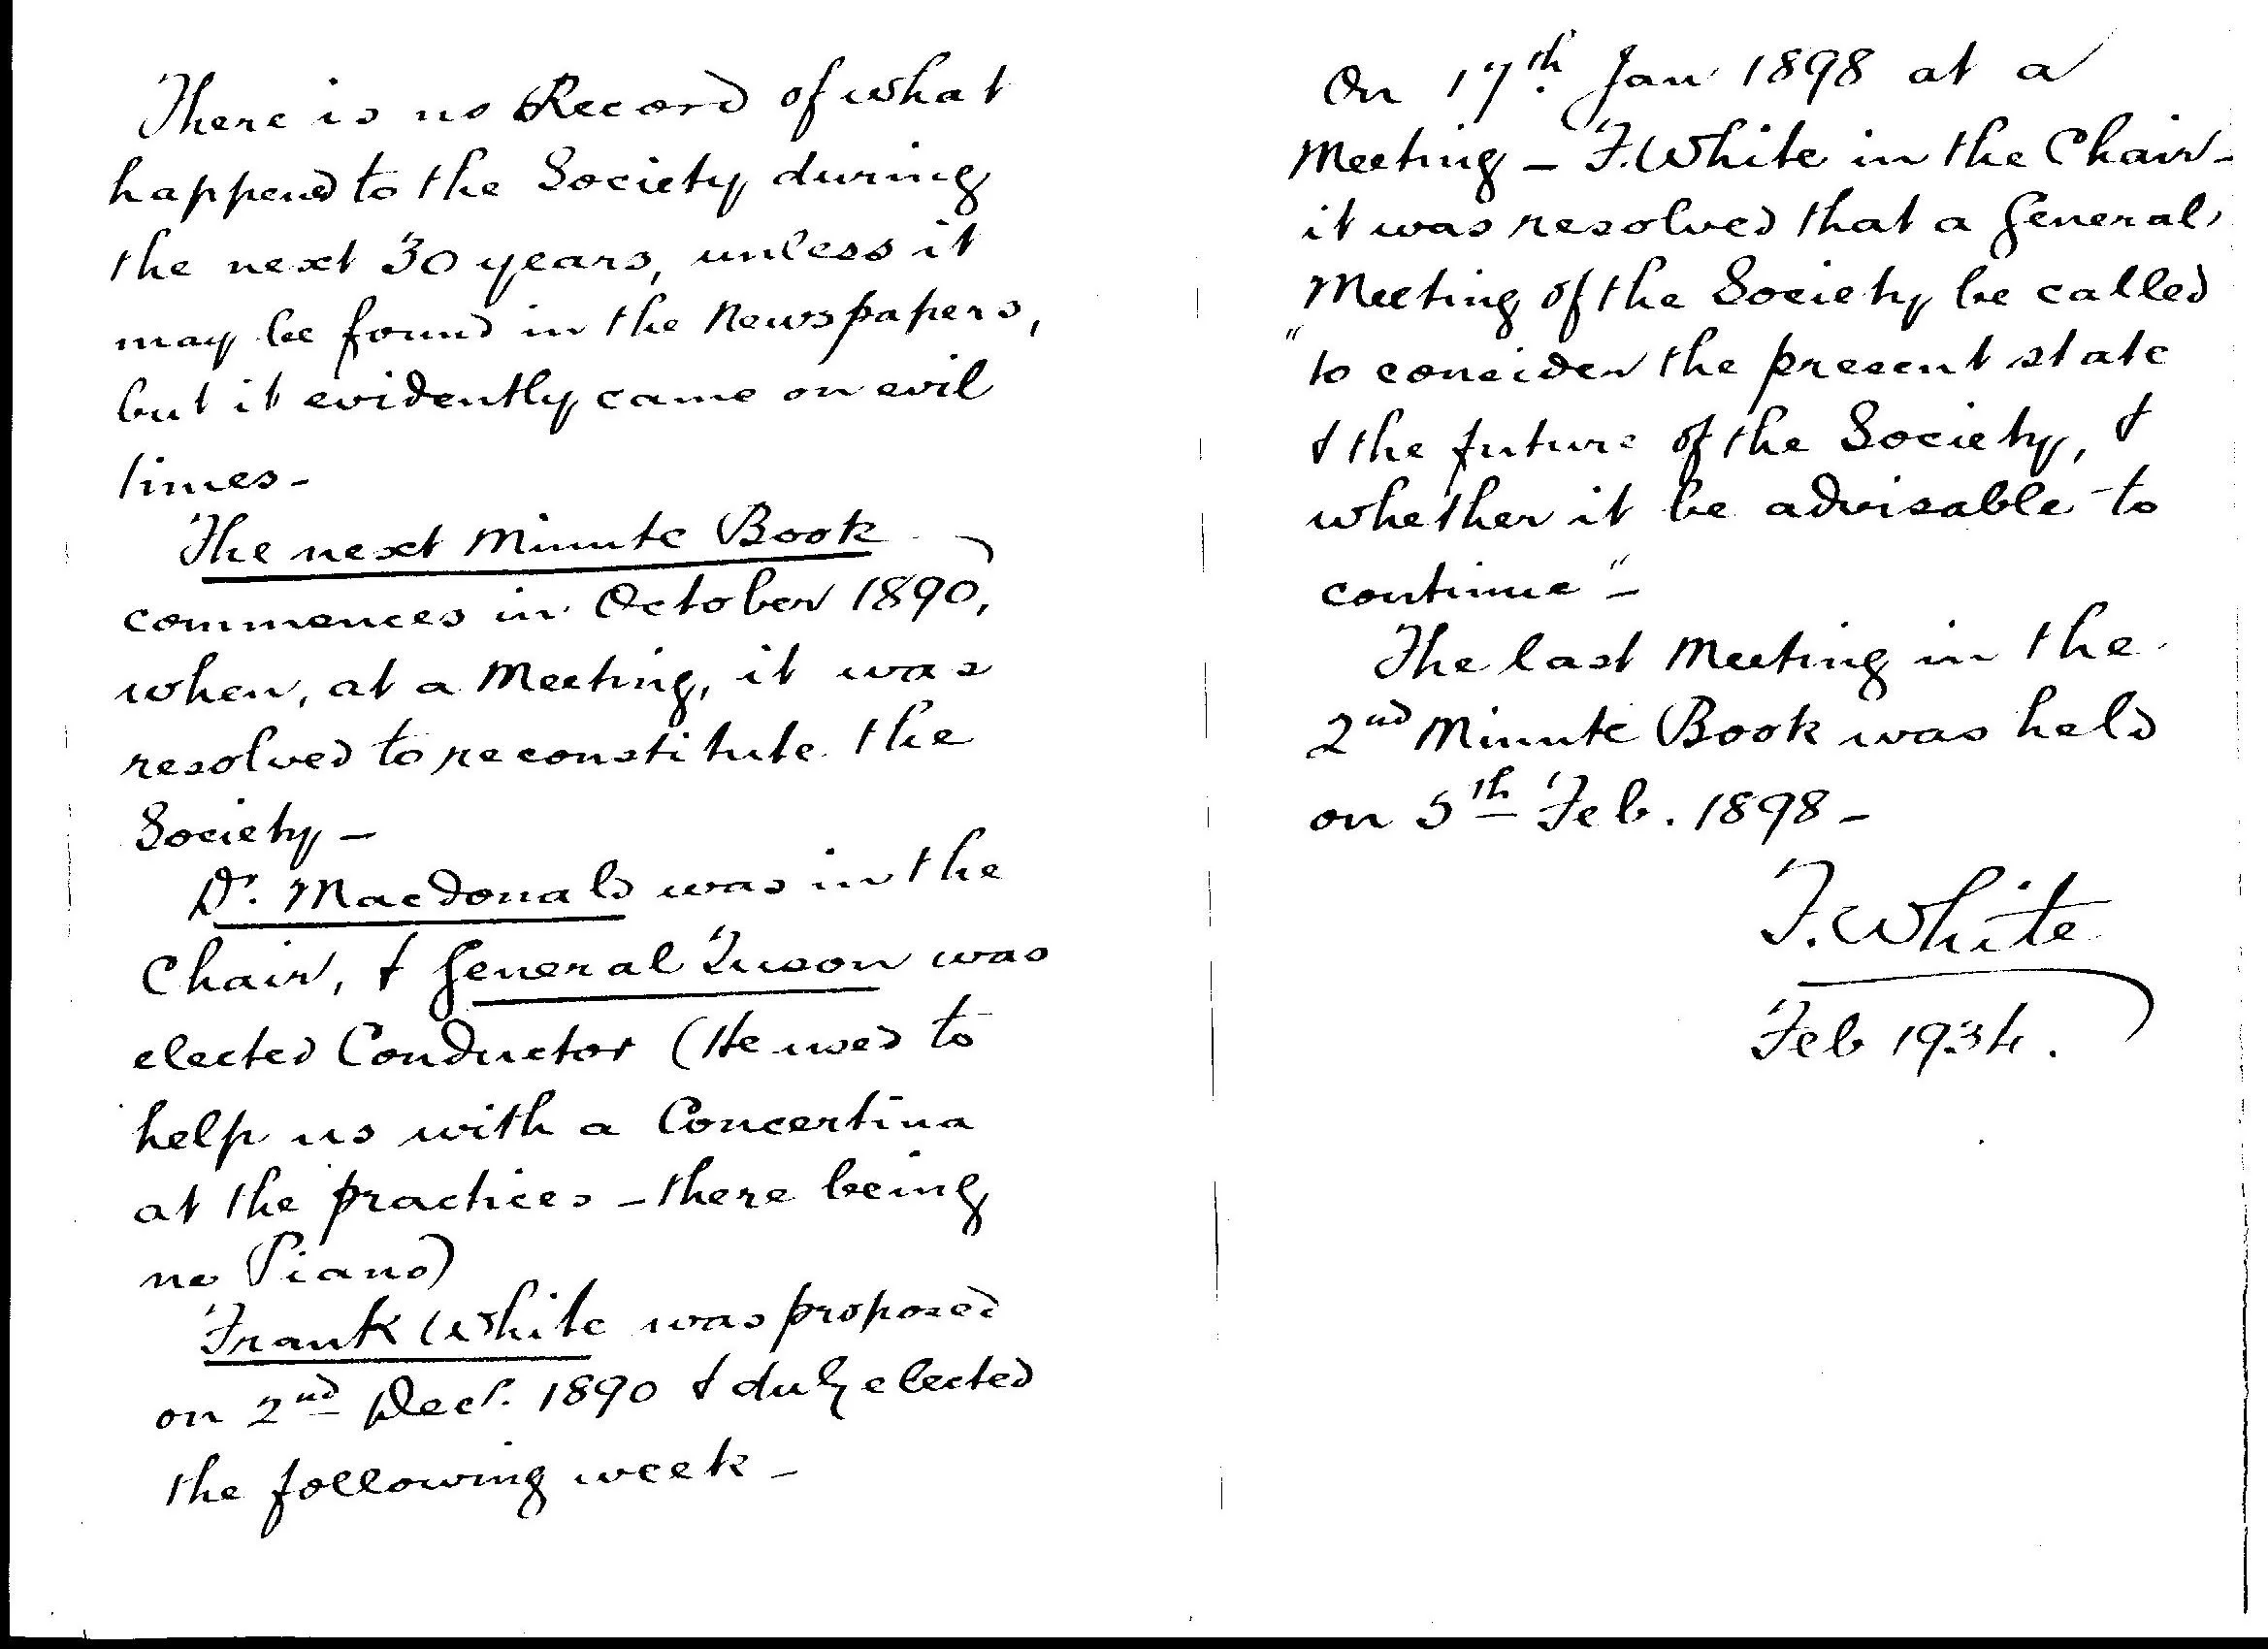 There is no Record of what
happened to the Society during
the next 30 years, unless it
may be found in the Newspapers,
but it evidently came on evil
times -
The next Minute Book
commences in October 1890,
when, at a Meeting, it was
resolved to reconstitute the
Society -
Dr. Macdonald was in the
Chair, & General Tuson was
elected Conductor (He used to
help us with a Concertina
at the practices - there being
no Piano)
Frank White was proposed
on 2nd Decr. 1890 & duly elected
the following week -
On 17th Jan 1898 at a
Meeting - F. White in the Chair -
it was resolved that a General
Meeting of the Society be called
"to consider the present state
& the future of the Society, &
whether it be advisable to
continue" -
The last Meeting in the
2nd Minute Book was held
on 5th Feb. 1898 -
F. White
Feb 1934.